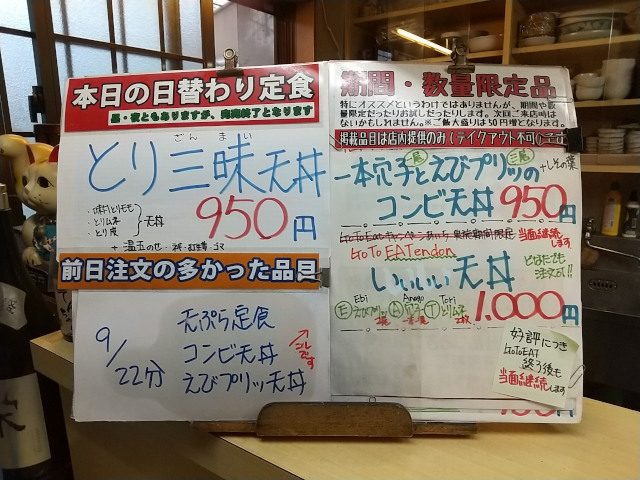 本日の日替わり定食
昼・夜ともありますが、売切終了となります
ざんまい
とり三昧天丼
・味付とりモモ
・とりムネ
・とり皮
天丼
950円
+温玉のせ
前日注文の多かった品目
9/22分
天ぷら定食
コンビ天丼
えびプリッ天丼
コレです
期間・数量限定品
特にオススメというわけではありませんが、期間や数
量限定だったりお試しだったりします。次回ご来店時は
ないかもしれません。※ご飯大盛りは50円増となります。
掲載品目は店内提供のみ(テイクアウト不可
一本穴子とえびプリッの
+しその葉
コンビ天丼 950円
GoToEatキャンペーンあいち 実施期間限定
当面継続します
GoTo EATendon
いいいい天丼
どなたでも
注文可!!
Ebi Anago Tori
Ⓔえびプリッ Ⓐ穴子 Ⓣとりムネ
2枚
1.000円
好評につき
GoToEAT
終了後も
当面継続します